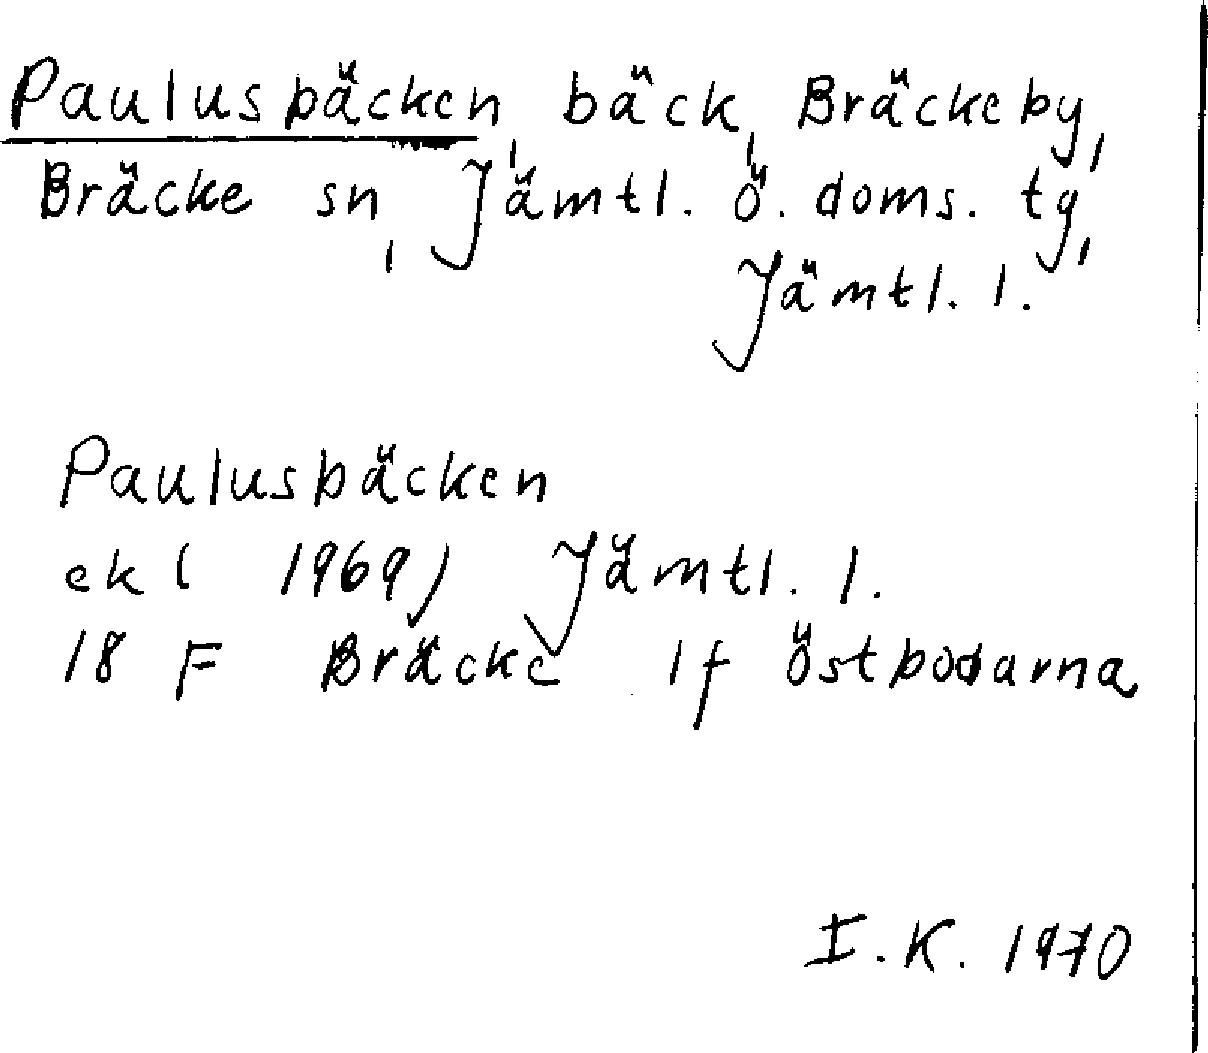 Paulusbäcken, bäck, Bräckeby,
Bräcke sn, Jämtl. ö. doms. tg,
Jämtl. l.
Paulusbäcken
ek ( 1969) Jämtl. l.
18 F Bräcke 1f Östbodarna
I.K. 1970